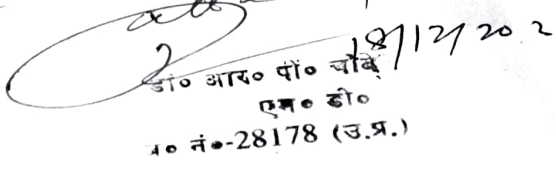 18/12/202
डॉ० आर० पी० चौबे
एम० डी०
नं०-28178 (उ.प्र.)